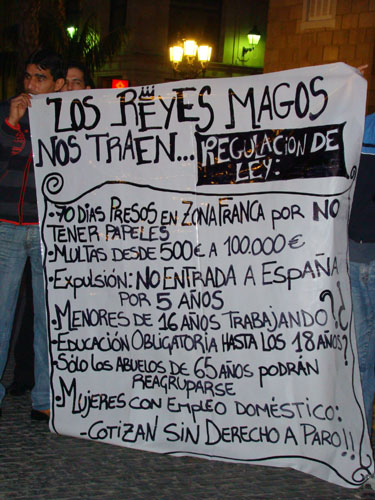 LOS REYES MAGOS
NOS TRAEN... REGULACION DE
LEY:
·70 DÍAS PRESOS EN ZONA FRANCA POR NO
TENER PAPELES
·MULTAS DESDE 500€ A 100.000€
·EXPULSIÓN: NO ENTRADA A ESPAÑA
POR 5 AÑOS
·MENORES DE 16 AÑOS TRABAJANDO?¿
·EDUCACIÓN OBLIGATORIA HASTA LOS 18 AÑOS?
·SÓLO LOS ABUELOS DE 65 AÑOS PODRÁN
REAGRUPARSE
·MUJERES CON EMPLEO DOMÉSTICO:
-COTIZAN SIN DERECHO A PARO!!